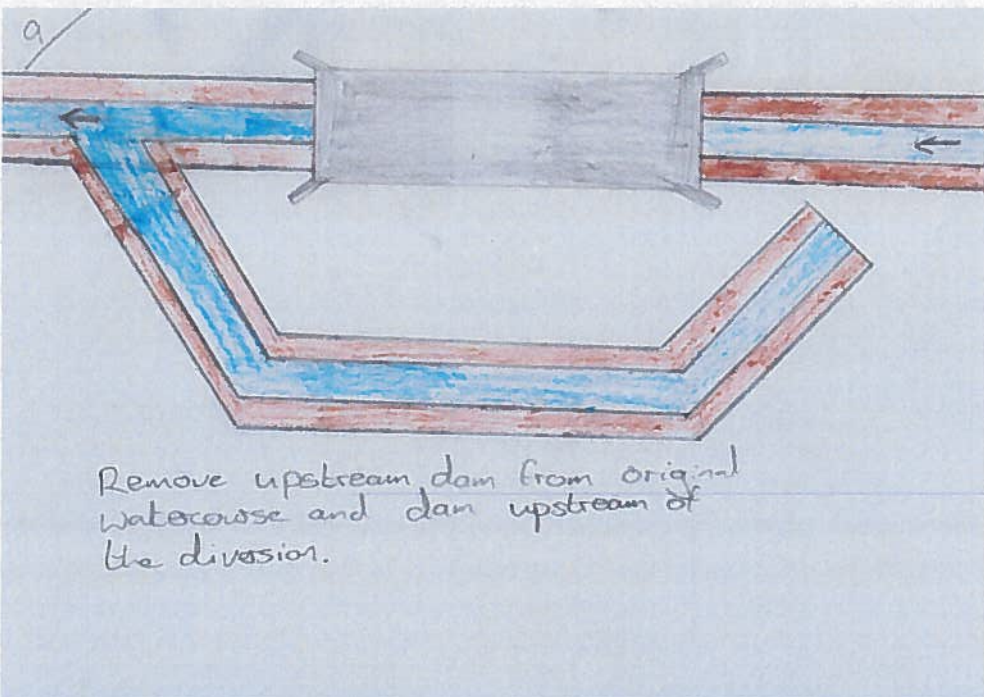 9
Remove upstream dam from original
watercourse and dam upstream of
the diversion.